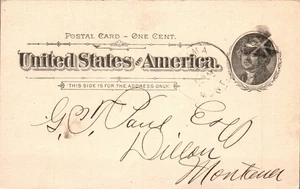 POSTAL CARD – ONE CENT.
United States of America.
THIS SIDE IS FOR THE ADDRESS ONLY.
Paul Esq
Dillon
Montana